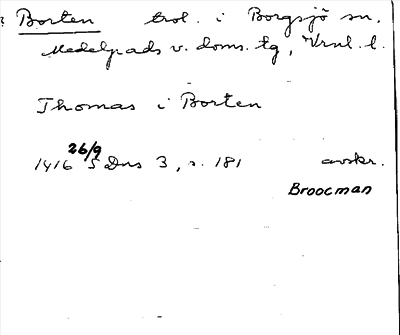 Borten trol. i Borgsjö sn.
Medelpads v. doms. tg, Vrnl. l.
Thomas i Borten
26/9
1416 S Dns 3, s. 181 avskr.
Broocman